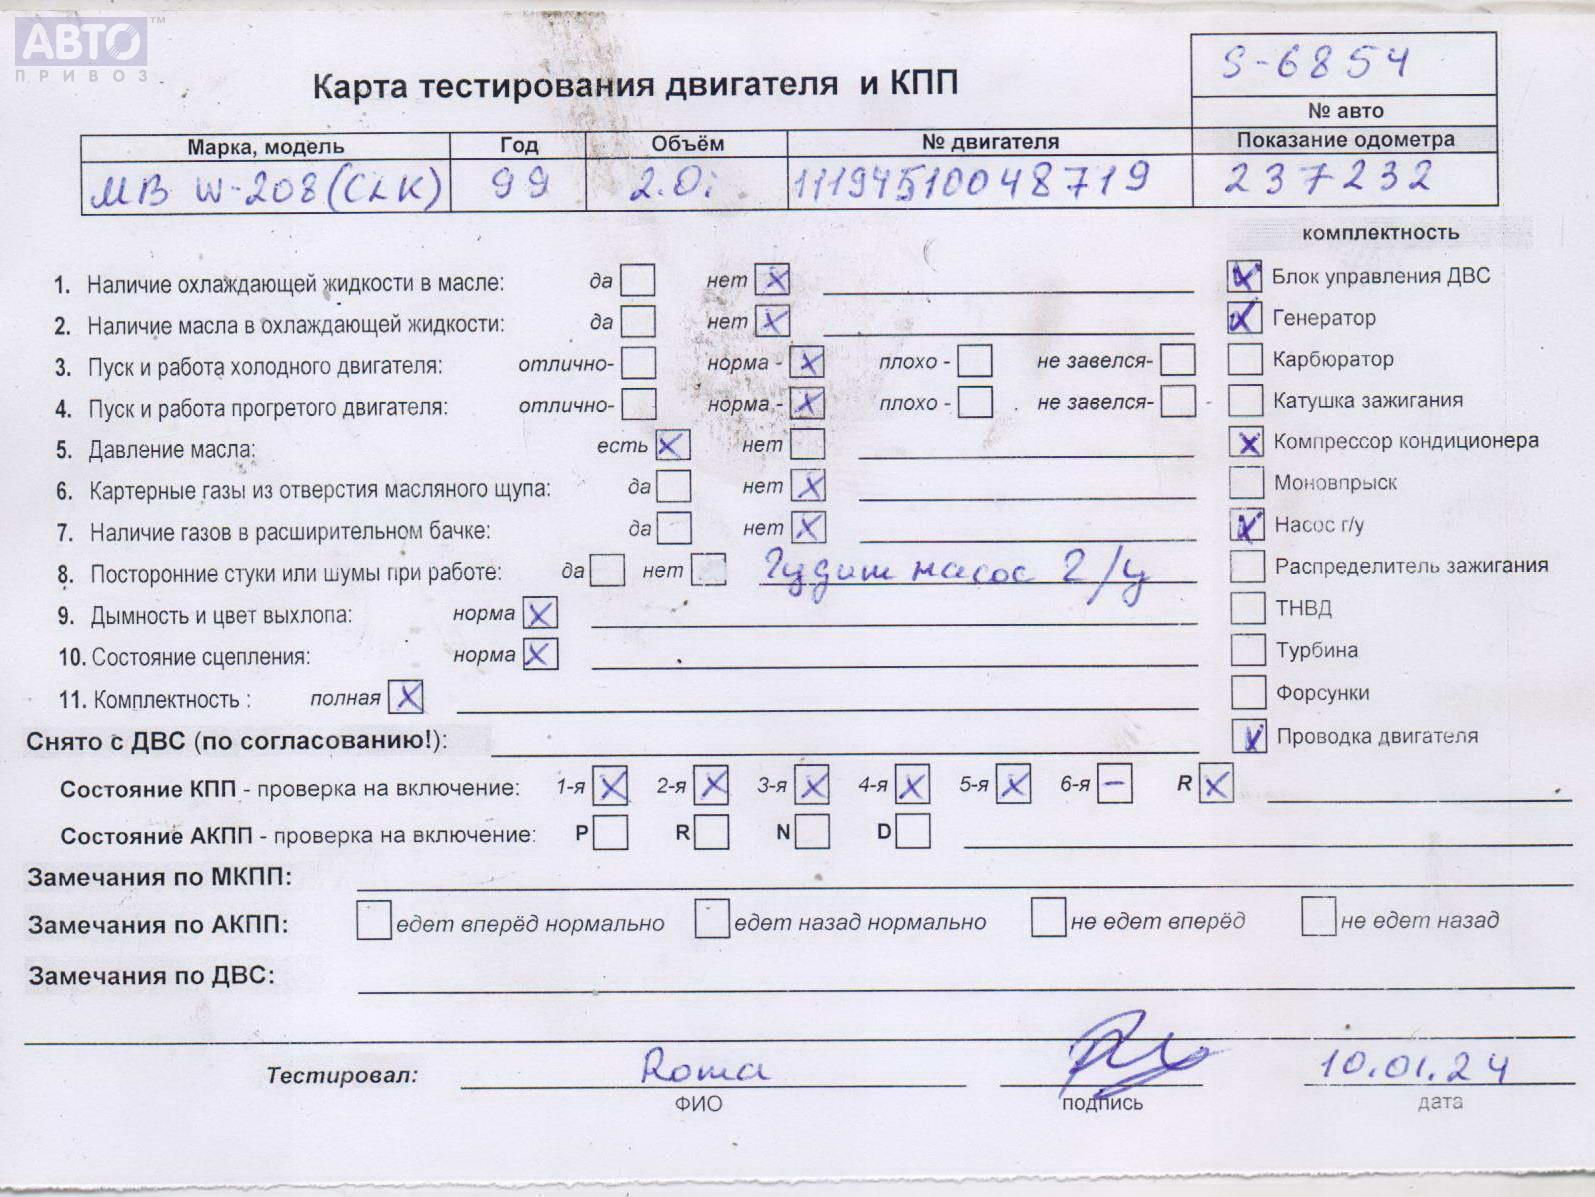 АВТО™
ПРИВОЗ
Карта тестирования двигателя и КПП
S-6854
№ авто
Марка, модель Год Объём № двигателя Показание одометра
МВ W-208 (CLK) 99 2.0i 11194510048719 237232
комплектность
1. Наличие охлаждающей жидкости в масле: да нет x
Блок управления ДВС
2. Наличие масла в охлаждающей жидкости: да нет x
Генератор
3. Пуск и работа холодного двигателя: отлично- норма - x плохо - не завелся-
Карбюратор
4. Пуск и работа прогретого двигателя: отлично- норма - x плохо - не завелся-
Катушка зажигания
5. Давление масла: есть x нет
Компрессор кондиционера
6. Картерные газы из отверстия масляного щупа: да нет x
Моновпрыск
7. Наличие газов в расширительном бачке: да нет x
Насос г/у
8. Посторонние стуки или шумы при работе: да нет Гудит насос г/у
Распределитель зажигания
9. Дымность и цвет выхлопа: норма x
ТНВД
10. Состояние сцепления: норма x
Турбина
11. Комплектность : полная x
Форсунки
Снято с ДВС (по согласованию!):
Проводка двигателя
Состояние КПП - проверка на включение: 1-я x 2-я x 3-я x 4-я x 5-я x 6-я – R x
Состояние АКПП - проверка на включение: P R N D
Замечания по МКПП:
Замечания по АКПП: едет вперёд нормально едет назад нормально не едет вперёд не едет назад
Замечания по ДВС:
Тестировал: Рома 10.01.24
ФИО подпись дата